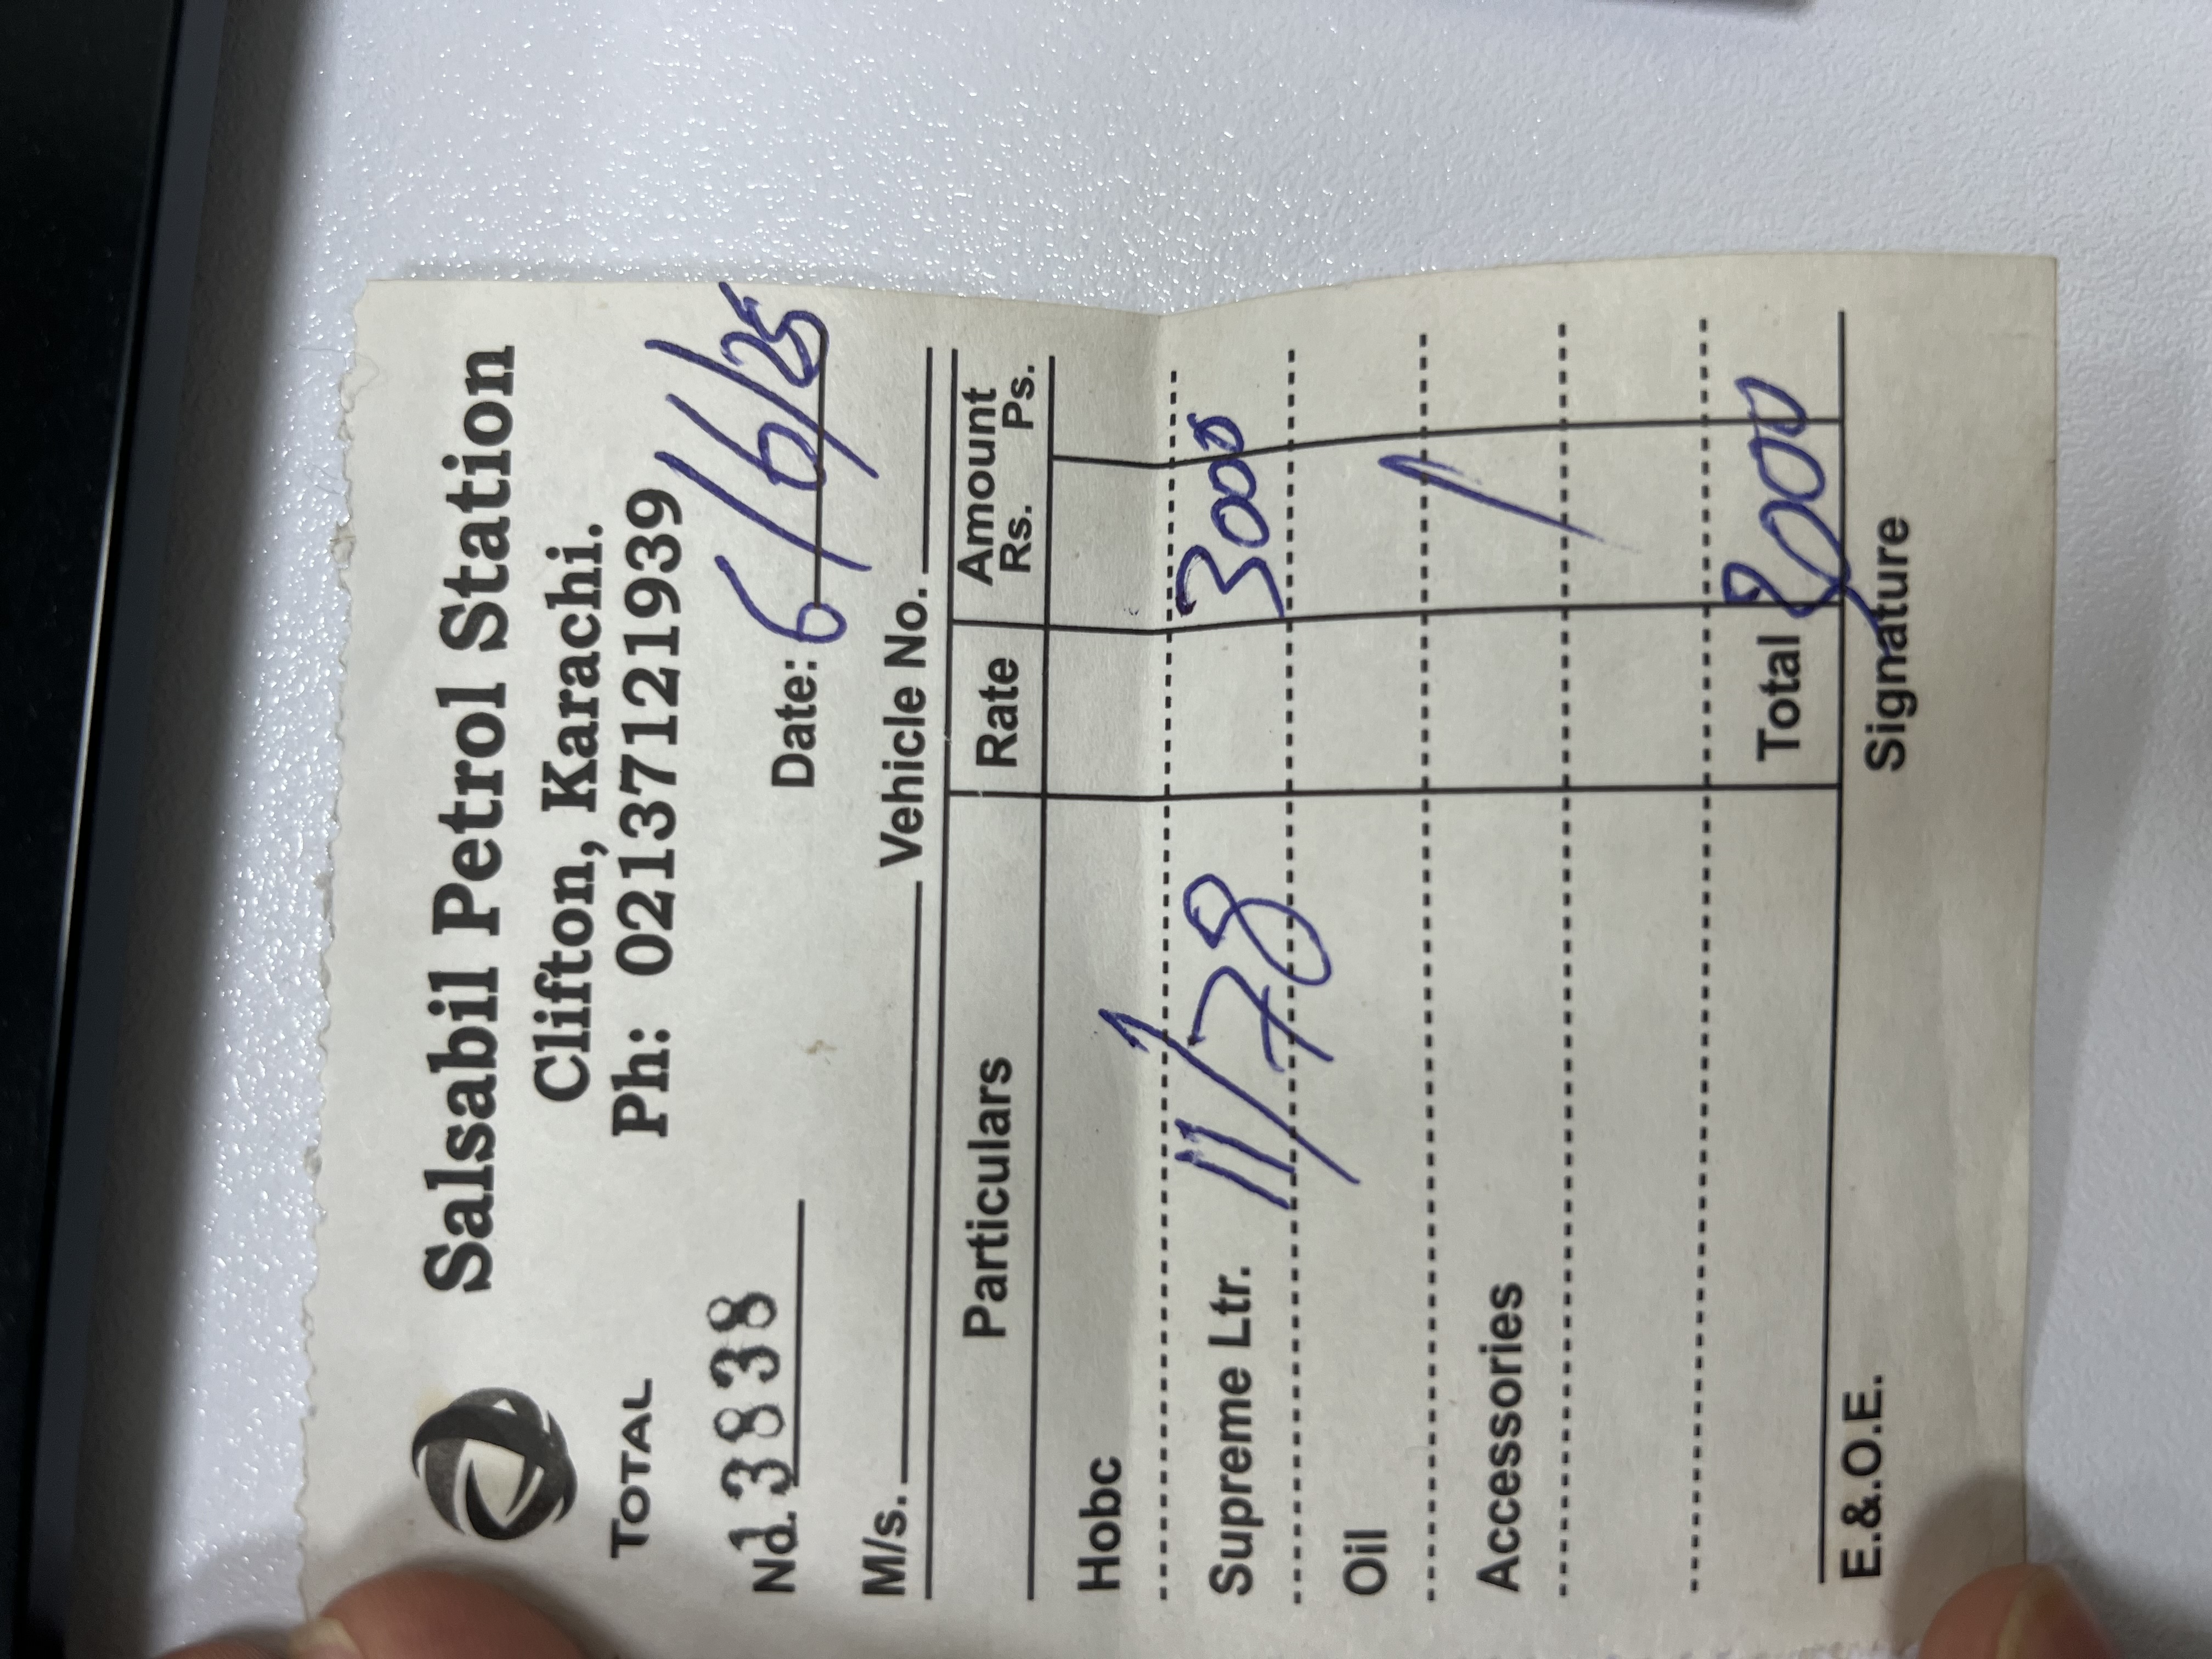 Salsabil Petrol Station
Clifton, Karachi.
Ph: 02137121939
TOTAL
No. 13838 Date: 6/6/25
M/s. Vehicle No.
Particulars Rate Amount
Rs. Ps.
Hobc
Supreme Ltr. 11/78 3000
Oil
Accessories
Total 3000
E.&.O.E. Signature